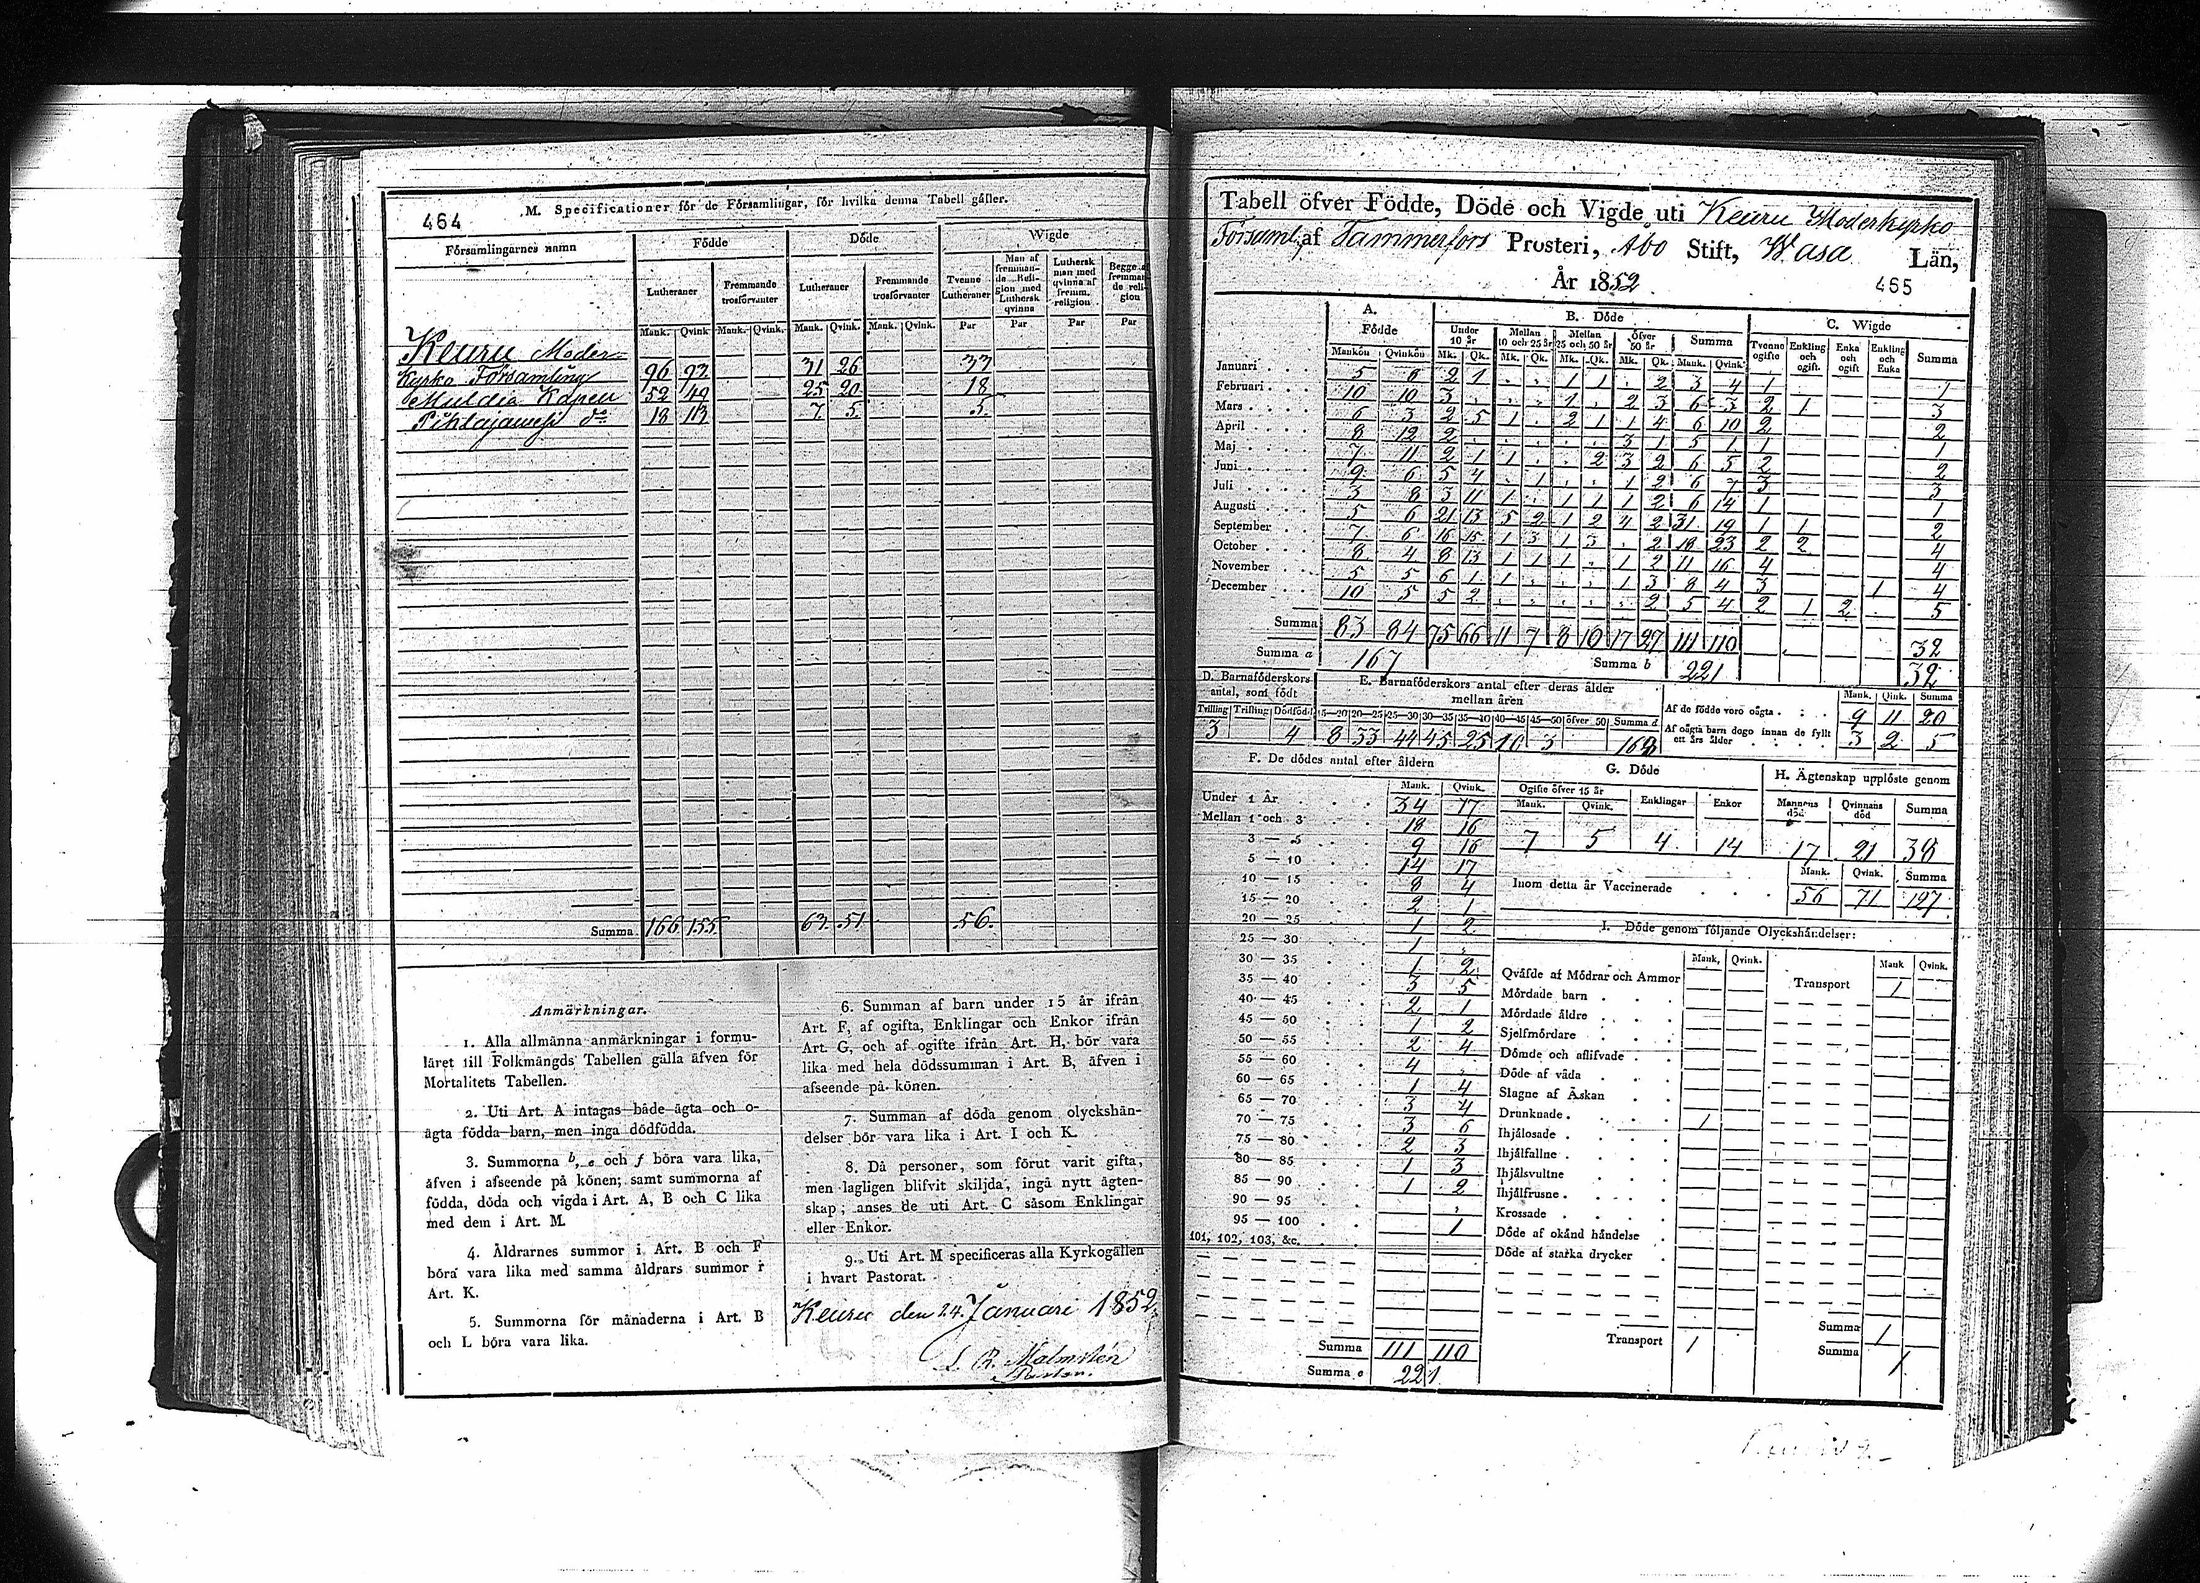 464
M. Specificationer för de Församlingar, för hvilka denna Tabell gäller.
Församlingarnes namn
Födde
Döde
Wigde
Lutheraner
Fremmande trosförvanter
Lutheraner
Fremmande trosförvanter
Tvenne Lutheraner
Man af fremmande Religion med Luthersk qvinna
Luthersk man med qvinna af fremm. religion
Begge af fremmande religion
Mank. Qvink. Mank. Qvink. Mank. Qvink. Mank. Qvink. Par Par Par Par
Keuru Moder=
Kyrko Församling 96 93 31 26 33
Multia Kapell 52 49 25 20 18
Pihlajavesi do 18 13 7 5 5
Summa 166 155 63 51 56
Anmärkningar.
1. Alla allmänna anmärkningar i formu-
läret till Folkmängds Tabellen gälla äfven för
Mortalitets Tabellen.
2. Uti Art. A intagas både ägta och o-
ägta födda barn, men inga dödfödda.
3. Summorna b, e och f böra vara lika,
äfven i afseende på könen; samt summorna af
födda, döda och vigda i Art. A, B och C lika
med dem i Art. M.
4. Åldrarnes summor i Art. B och F
böra vara lika med samma åldrars summor i
Art. K.
5. Summorna för månaderna i Art. B
och L böra vara lika.
6. Summan af barn under 15 år ifrån
Art. F, af ogifta, Enklingar och Enkor ifrån
Art. G, och af ogifte ifrån Art. H, bör vara
lika med hela dödssumman i Art. B, äfven i
afseende på könen.
7. Summan af döda genom olyckshän-
delser bör vara lika i Art. I och K.
8. Då personer, som förut varit gifta,
men lagligen blifvit skiljda, ingå nytt ägten-
skap; anses de uti Art. C såsom Enklingar
eller Enkor.
9. Uti Art. M specificeras alla Kyrkogällen
i hvart Pastorat.
Keuru den 24 Januari 1852
L. R. Malmstén
Pastor.
Tabell öfver Födde, Döde och Vigde uti Keuru Moderkyrko
Församl. af Tammerfors Prosteri, Åbo Stift, Wasa Län,
År 1852.
465
A. Födde
B. Döde
C. Wigde
Under 10 år
Mellan 10 och 25 år
Mellan 25 och 50 år
Öfver 50 år
Summa
Tvenne ogifte
Enkling och ogift.
Enka och ogift
Enkling och Enka
Summa
Mankön Qvinkön Mk. Qk. Mk. Qk. Mk. Qk. Mk. Qk. Mank. Qvink.
Januari 5 8 2 1 . . 1 1 . 2 3 4 1 1
Februari 10 10 3 . . . 1 . 2 3 6 3 2 1 3
Mars 6 3 2 5 1 . 2 1 1 4 6 10 2 2
April 8 12 2 . . . . . 3 1 5 1 1 1
Maj 7 11 2 1 1 . . 2 3 2 6 5 2 2
Juni 9 6 5 4 . 1 . . 1 2 6 7 3 3
Juli 3 8 3 11 1 . 1 1 1 2 6 14 1 1
Augusti 5 6 21 13 5 2 1 2 4 2 31 19 1 1 2
September 7 6 16 15 1 3 1 3 . 2 18 23 2 2 4
October 8 4 8 13 1 1 1 . 1 2 11 16 4 4
November 5 5 6 1 1 . . . 1 3 8 4 3 1 4
December 10 5 5 2 . . . . . 2 5 4 2 1 2 . 5
Summa 83 84 75 66 11 7 8 10 17 27 111 110 32
Summa a 167 Summa b 221 32
D. Barnaföderskors antal, som födt
Tvilling Trilling Dödfödd
3 4
E. Barnaföderskors antal efter deras ålder
mellan åren
15—20 20—25 25—30 30—35 35—40 40—45 45—50 öfver 50 Summa d
8 33 44 45 25 10 3 168
Mank. Qink. Summa
Af de födde voro oägta 9 11 20
Af oägta barn dogo innan de fyllt
ett års ålder 3 2 5
F. De dödes antal efter åldern
Mank. Qvink.
Under 1 År 34 17
Mellan 1 och 3 18 16
3 — 5 9 16
5 — 10 14 17
10 — 15 8 4
15 — 20 2 1
20 — 25 1 2
25 — 30 1 .
30 — 35 1 2
35 — 40 3 5
40 — 45 2 1
45 — 50 1 2
50 — 55 2 4
55 — 60 4 .
60 — 65 1 4
65 — 70 3 4
70 — 75 3 6
75 — 80 2 3
80 — 85 1 3
85 — 90 1 2
90 — 95 .
95 — 100 1
101, 102, 103, &c.
Summa 111 110
Summa e 221
G. Döde
Ogifte öfver 15 år
Mank. Qvink. Enklingar Enkor
7 5 4 14
H. Ägtenskap upplöste genom
Mannens död Qvinnans död Summa
17 21 38
Mank. Qvink. Summa
Inom detta år Vaccinerade 56 71 127
I. Döde genom följande Olyckshändelser:
Mank. Qvink. Mank Qvink.
Qväfde af Mödrar och Ammor
Mördade barn
Mördade äldre
Sjelfmördare
Dömde och aflifvade
Döde af våda
Slagne af Åskan
Drunknade 1
Ihjälosade
Ihjälfallne
Ihjälsvultne
Ihjälfrusne
Krossade
Döde af okänd händelse
Döde af starka drycker
Transport 1
Transport 1
Summa 1
Summa 1